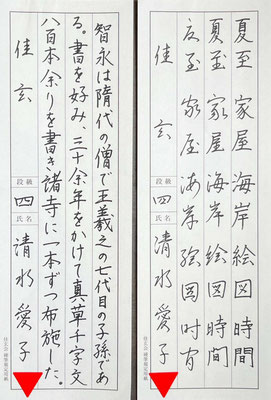 夏至 家屋 海岸 絵図 時間
夏至 家屋 海岸 絵図 時間
夏至 家屋 海岸 絵図 時間
佳玄
段級 四
氏名 清水愛子
智永は隋代の僧で王羲之の七代目の子孫であ
る。書を好み、三十余年をかけて真草千字文
八百本余りを書き諸寺に一本ずつ布施した。
佳玄
段級 四
氏名 清水愛子